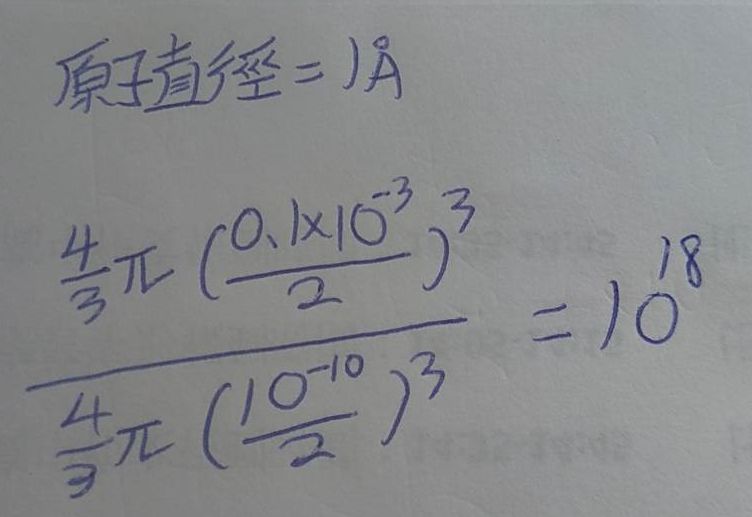 原子直徑=1Å
\frac{\frac{4}{3}π(\frac{0.1×10^{-3}}{2})^3}{\frac{4}{3}π(\frac{10^{-10}}{2})^3} = 10^{18}